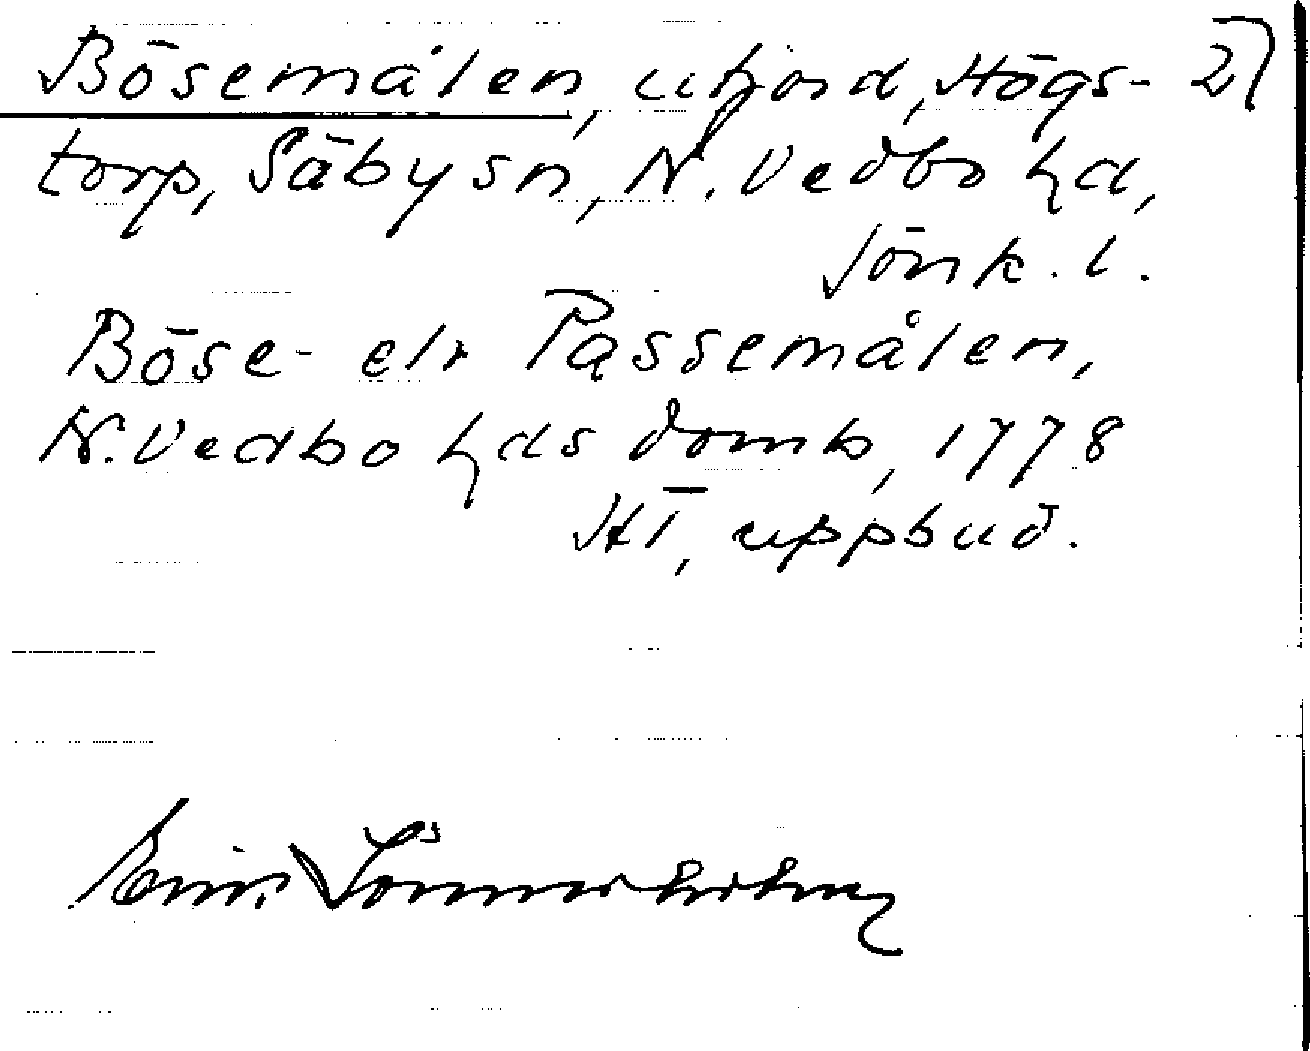 Bösemålen, utjord, Högs- 2)
torp, Säby sn, N. Vedbo hd,
Jönk. l.
Böse- elr Passemålen,
N. Vedbo hds domb, 1778
HT, uppbud.